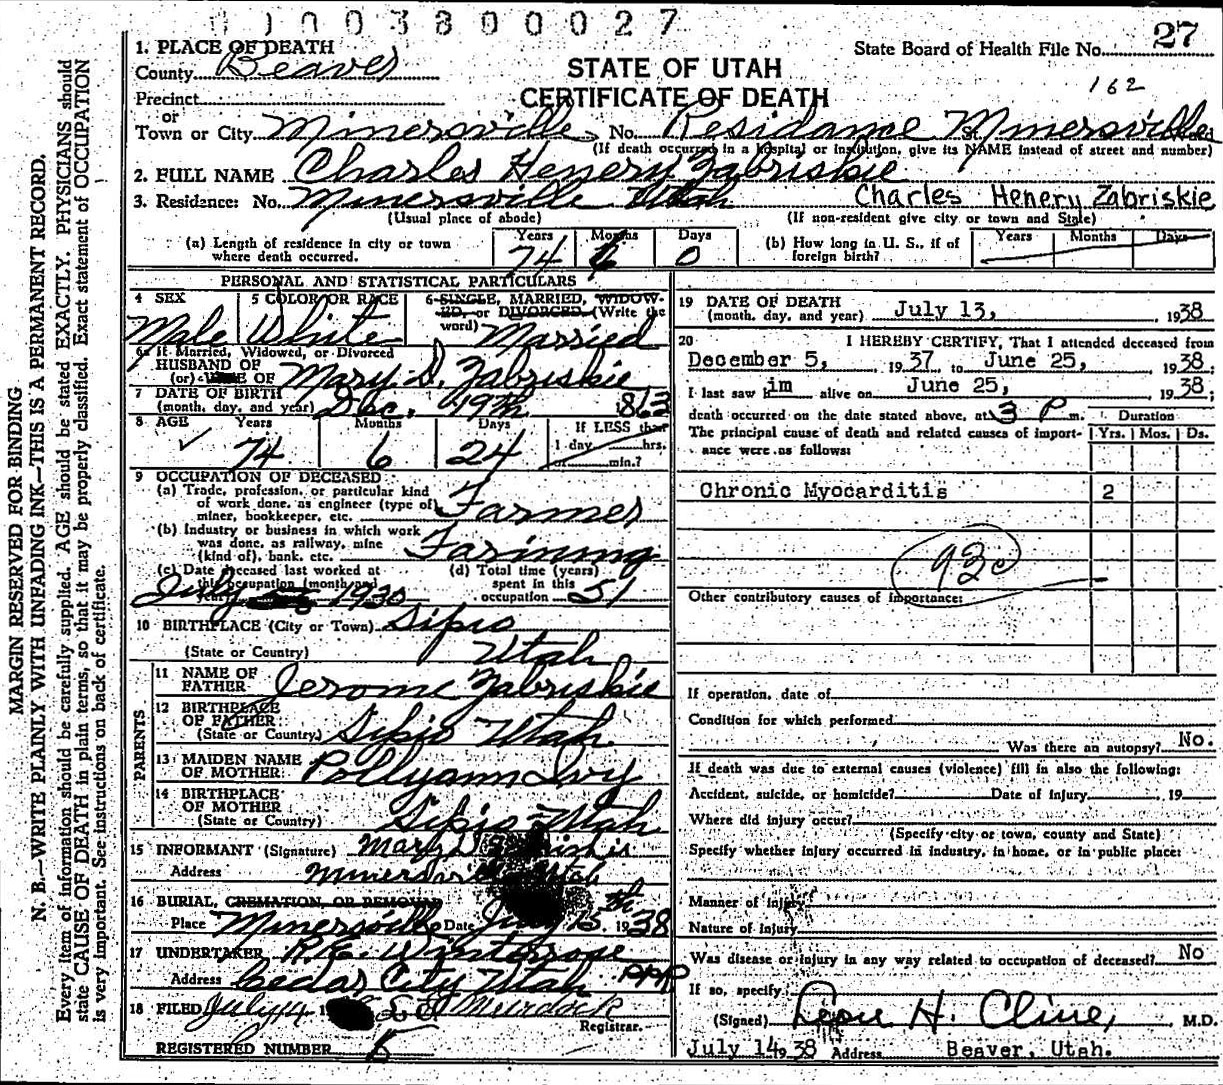 0 1 0 0 3 8 0 0 0 2 7
State Board of Health File No. 27
162
1. PLACE OF DEATH
County Beaver
STATE OF UTAH
CERTIFICATE OF DEATH
Precinct
or
Town or City Minersville No. Residance St. Minersville
(If death occurred in a hospital or institution, give its NAME instead of street and number)
2. FULL NAME Charles Henery Zabriskie
3. Residence: No. Minersville Utah Charles Henery Zabriskie
(Usual place of abode) (If non-resident give city or town and State)
(a) Length of residence in city or town where death occurred. Years 74 Months 6 Days 0
(b) How long in U. S., if of foreign birth? Years Months Days
PERSONAL AND STATISTICAL PARTICULARS
4 SEX Male
5 COLOR OR RACE White
6 SINGLE, MARRIED, WIDOW-
ED, or DIVORCED (Write the
word) Married
6a If Married, Widowed, or Divorced
HUSBAND OF
(or) WIFE OF Mary D. Zabriskie
7 DATE OF BIRTH
(month, day, and year) Dec. 19th 1863
8 AGE Years 74 Months 6 Days 24
If LESS than
1 day hrs.
or min.?
9 OCCUPATION OF DECEASED
(a) Trade, profession, or particular kind
of work done, as engineer (type of
miner, bookkeeper, etc. Farmer
(b) Industry or business in which work
was done, as railway, mine
(kind of), bank, etc. Farming
(c) Date deceased last worked at
this occupation (month and
year) July 1930
(d) Total time (years)
spent in this
occupation 51
10 BIRTHPLACE (City or Town) Sipio
(State or Country) Utah
PARENTS
11 NAME OF
FATHER Jerome Zabriskie
12 BIRTHPLACE
OF FATHER
(State or Country) Sipio Utah
13 MAIDEN NAME
OF MOTHER Pollyann Ivy
14 BIRTHPLACE
OF MOTHER
(State or Country) Sipio Utah
15 INFORMANT (Signature) Mary D Zabriskie
Address Minersville Utah
16 BURIAL, CREMATION, OR REMOVAL
Place Minersville Date July 15th 1938
17 UNDERTAKER R.E. Winterrose
Address Cedar City Utah
18 FILED July 14 Murdock
Registrar.
REGISTERED NUMBER
19 DATE OF DEATH
(month, day, and year) July 13, 1938
20 I HEREBY CERTIFY, That I attended deceased from
December 5, 1937, to June 25, 1938;
I last saw him alive on June 25, 1938;
death occurred on the date stated above, at 3 P m. Duration
The principal cause of death and related causes of import-
ance were as follows: Yrs. Mos. Ds.
Chronic Myocarditis 2
93c
Other contributory causes of importance:
If operation, date of
Condition for which performed
Was there an autopsy? No.
If death was due to external causes (violence) fill in also the following:
Accident, suicide, or homicide? Date of injury 19
Where did injury occur?
(Specify city or town, county and State)
Specify whether injury occurred in industry, in home, or in public place:
Manner of injury
Nature of injury
Was disease or injury in any way related to occupation of deceased? No
If so, specify
(Signed) Leon H. Cline, M.D.
July 14 1938 Address Beaver, Utah.
MARGIN RESERVED FOR BINDING
N. B.—WRITE PLAINLY WITH UNFADING INK—THIS IS A PERMANENT RECORD.
Every item of information should be carefully supplied. AGE should be stated EXACTLY. PHYSICIANS should
state CAUSE OF DEATH in plain terms, so that it may be properly classified. Exact statement of OCCUPATION
is very important. See instructions on back of certificate.